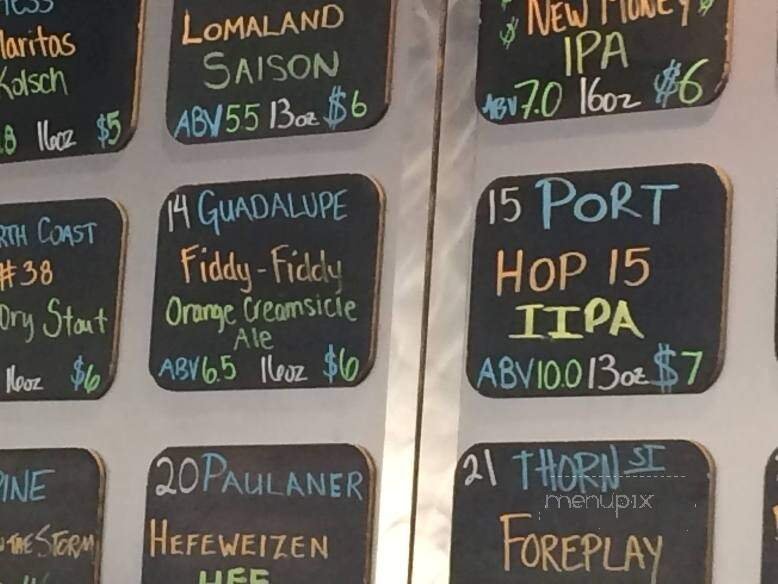 laritas
Kolsch
.8 16oz $5
LOMALAND
SAISON
ABV 55 13oz $6
NEW MONEY
IPA
ABV 7.0 16oz $6
RTH COAST
#38
Dry Stout
16oz $6
14 GUADALUPE
Fiddy-Fiddy
Orange Creamsicle
Ale
ABV 6.5 16oz $6
15 PORT
HOP 15
IIPA
ABV 10.0 13oz $7
PINE
THE STORM
20 PAULANER
HEFEWEIZEN
HEF
21 THORN ST
FOREPLAY
menupix